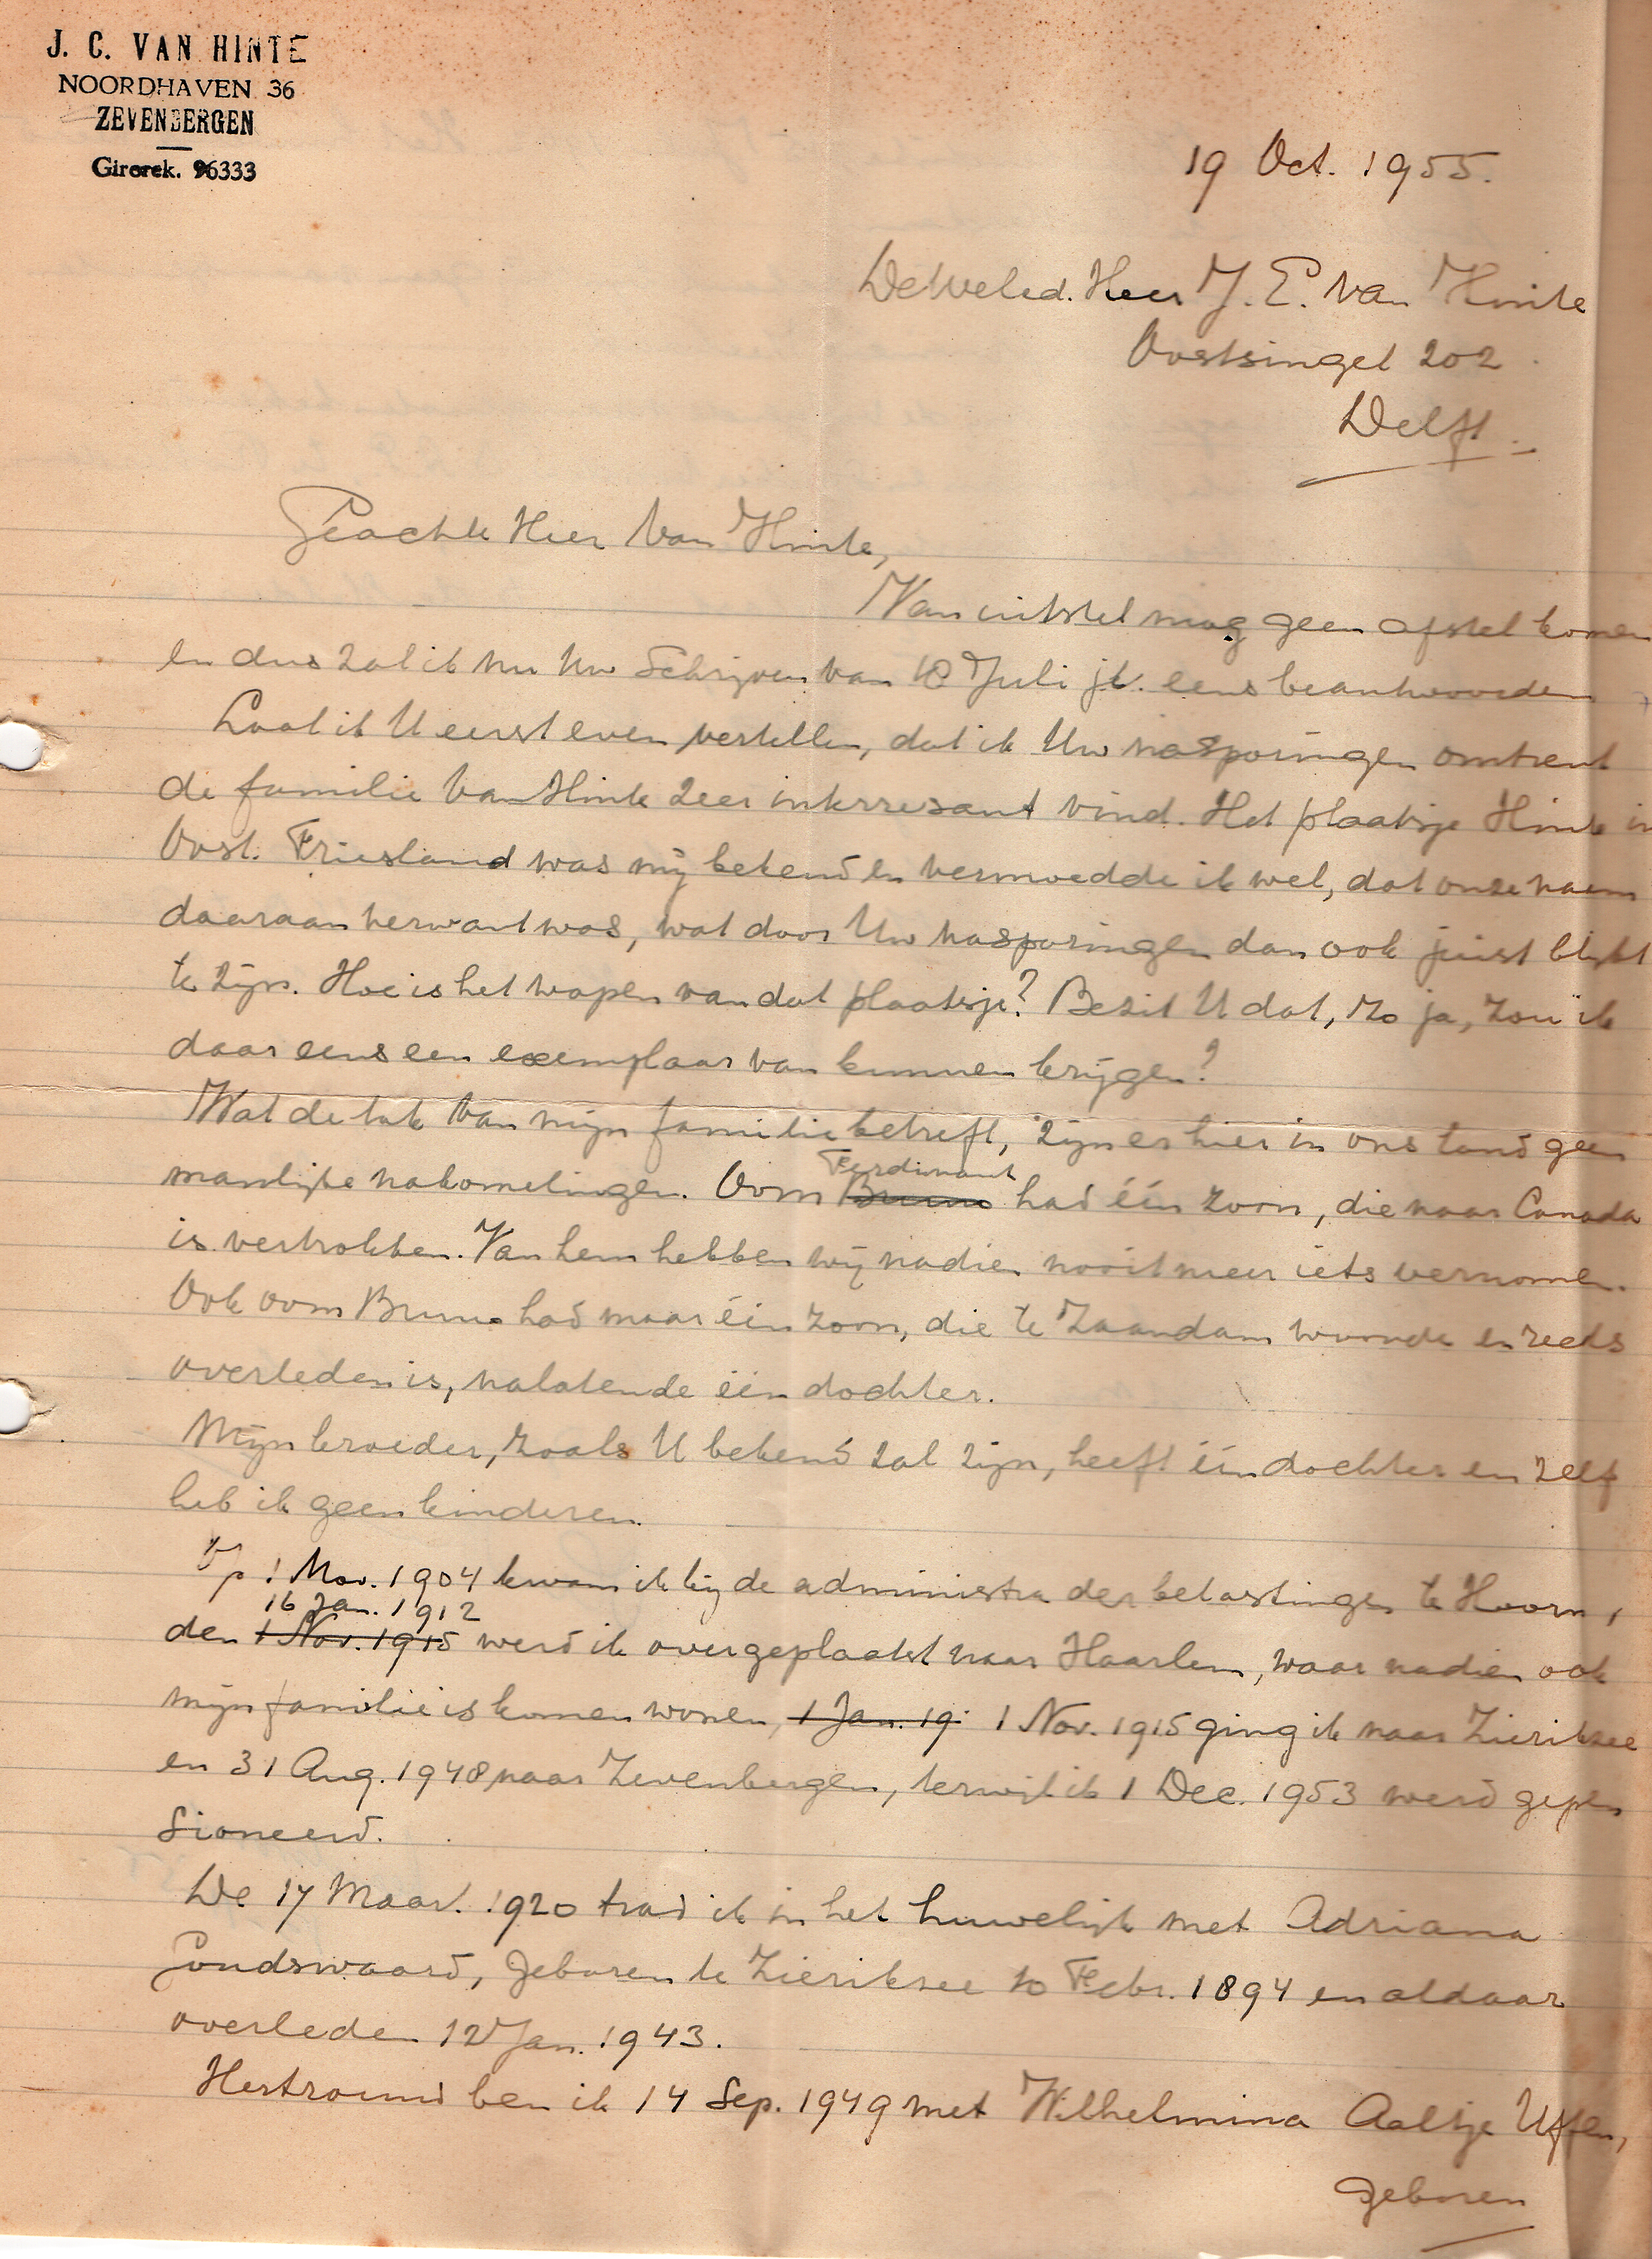 J. C. VAN HINTE
NOORDHAVEN 36
ZEVENBERGEN
Girorek. 96333
19 Oct. 1955.
De Weled. Heer J. E. Van Hinte
Oostsingel 202.
Delft.
Geachte Heer Van Hinte,
Van uitstel mag geen afstel komen
en dus zal ik nu Uw schrijven van 18 Juli jl. eens beantwoorden
Laat ik U eerst even vertellen, dat ik Uw nasporingen omtrent
de familie Van Hinte zeer interresant vind. Het plaatsje Hinte in
Oost. Friesland was mij bekend en vermoedde ik wel, dat onze naam
daaraan verwant was, wat door Uw nasporingen dan ook juist blijkt
te zijn. Hoe is het wapen van dat plaatsje? Bezit U dat, zo ja, zou ik
daar eens een exemplaar van kunnen krijgen?
Wat de tak van mijn familie betreft, zijn er hier in ons land geen
manlijke nakomelingen. Oom Bruno Ferdinant had één zoon, die naar Canada
is vertrokken. Van hem hebben wij nadien nooit meer iets vernomen.
Ook oom Bruno had maar één zoon, die te Zaandam woonde en reeds
overleden is, nalatende één dochter.
Mijn broeder, zoals U bekend zal zijn, heeft één dochter en zelf
heb ik geen kinderen.
Op 1 Nov. 1904 kwam ik bij de administra der belastingen te Hoorn,
16 Jan. 1912
den 1 Nov. 1915 werd ik overgeplaatst naar Haarlem, waar nadien ook
mijn familie is komen wonen, 1 Jan. 19 1 Nov. 1915 ging ik naar Zieriksee
en 31 Aug. 1948 naar Zevenbergen, terwijl ik 1 Dec. 1953 werd gepen
sioneerd.
De 17 Maart. 1920 trad ik in het huwelijk met Adriana
Goudswaard, geboren te Zieriksee 10 Febr. 1894 en aldaar
overleden 12 Jan. 1943.
Hertrouwd ben ik 14 Sep. 1949 met Wilhelmina Aaltje Uffen,
geboren